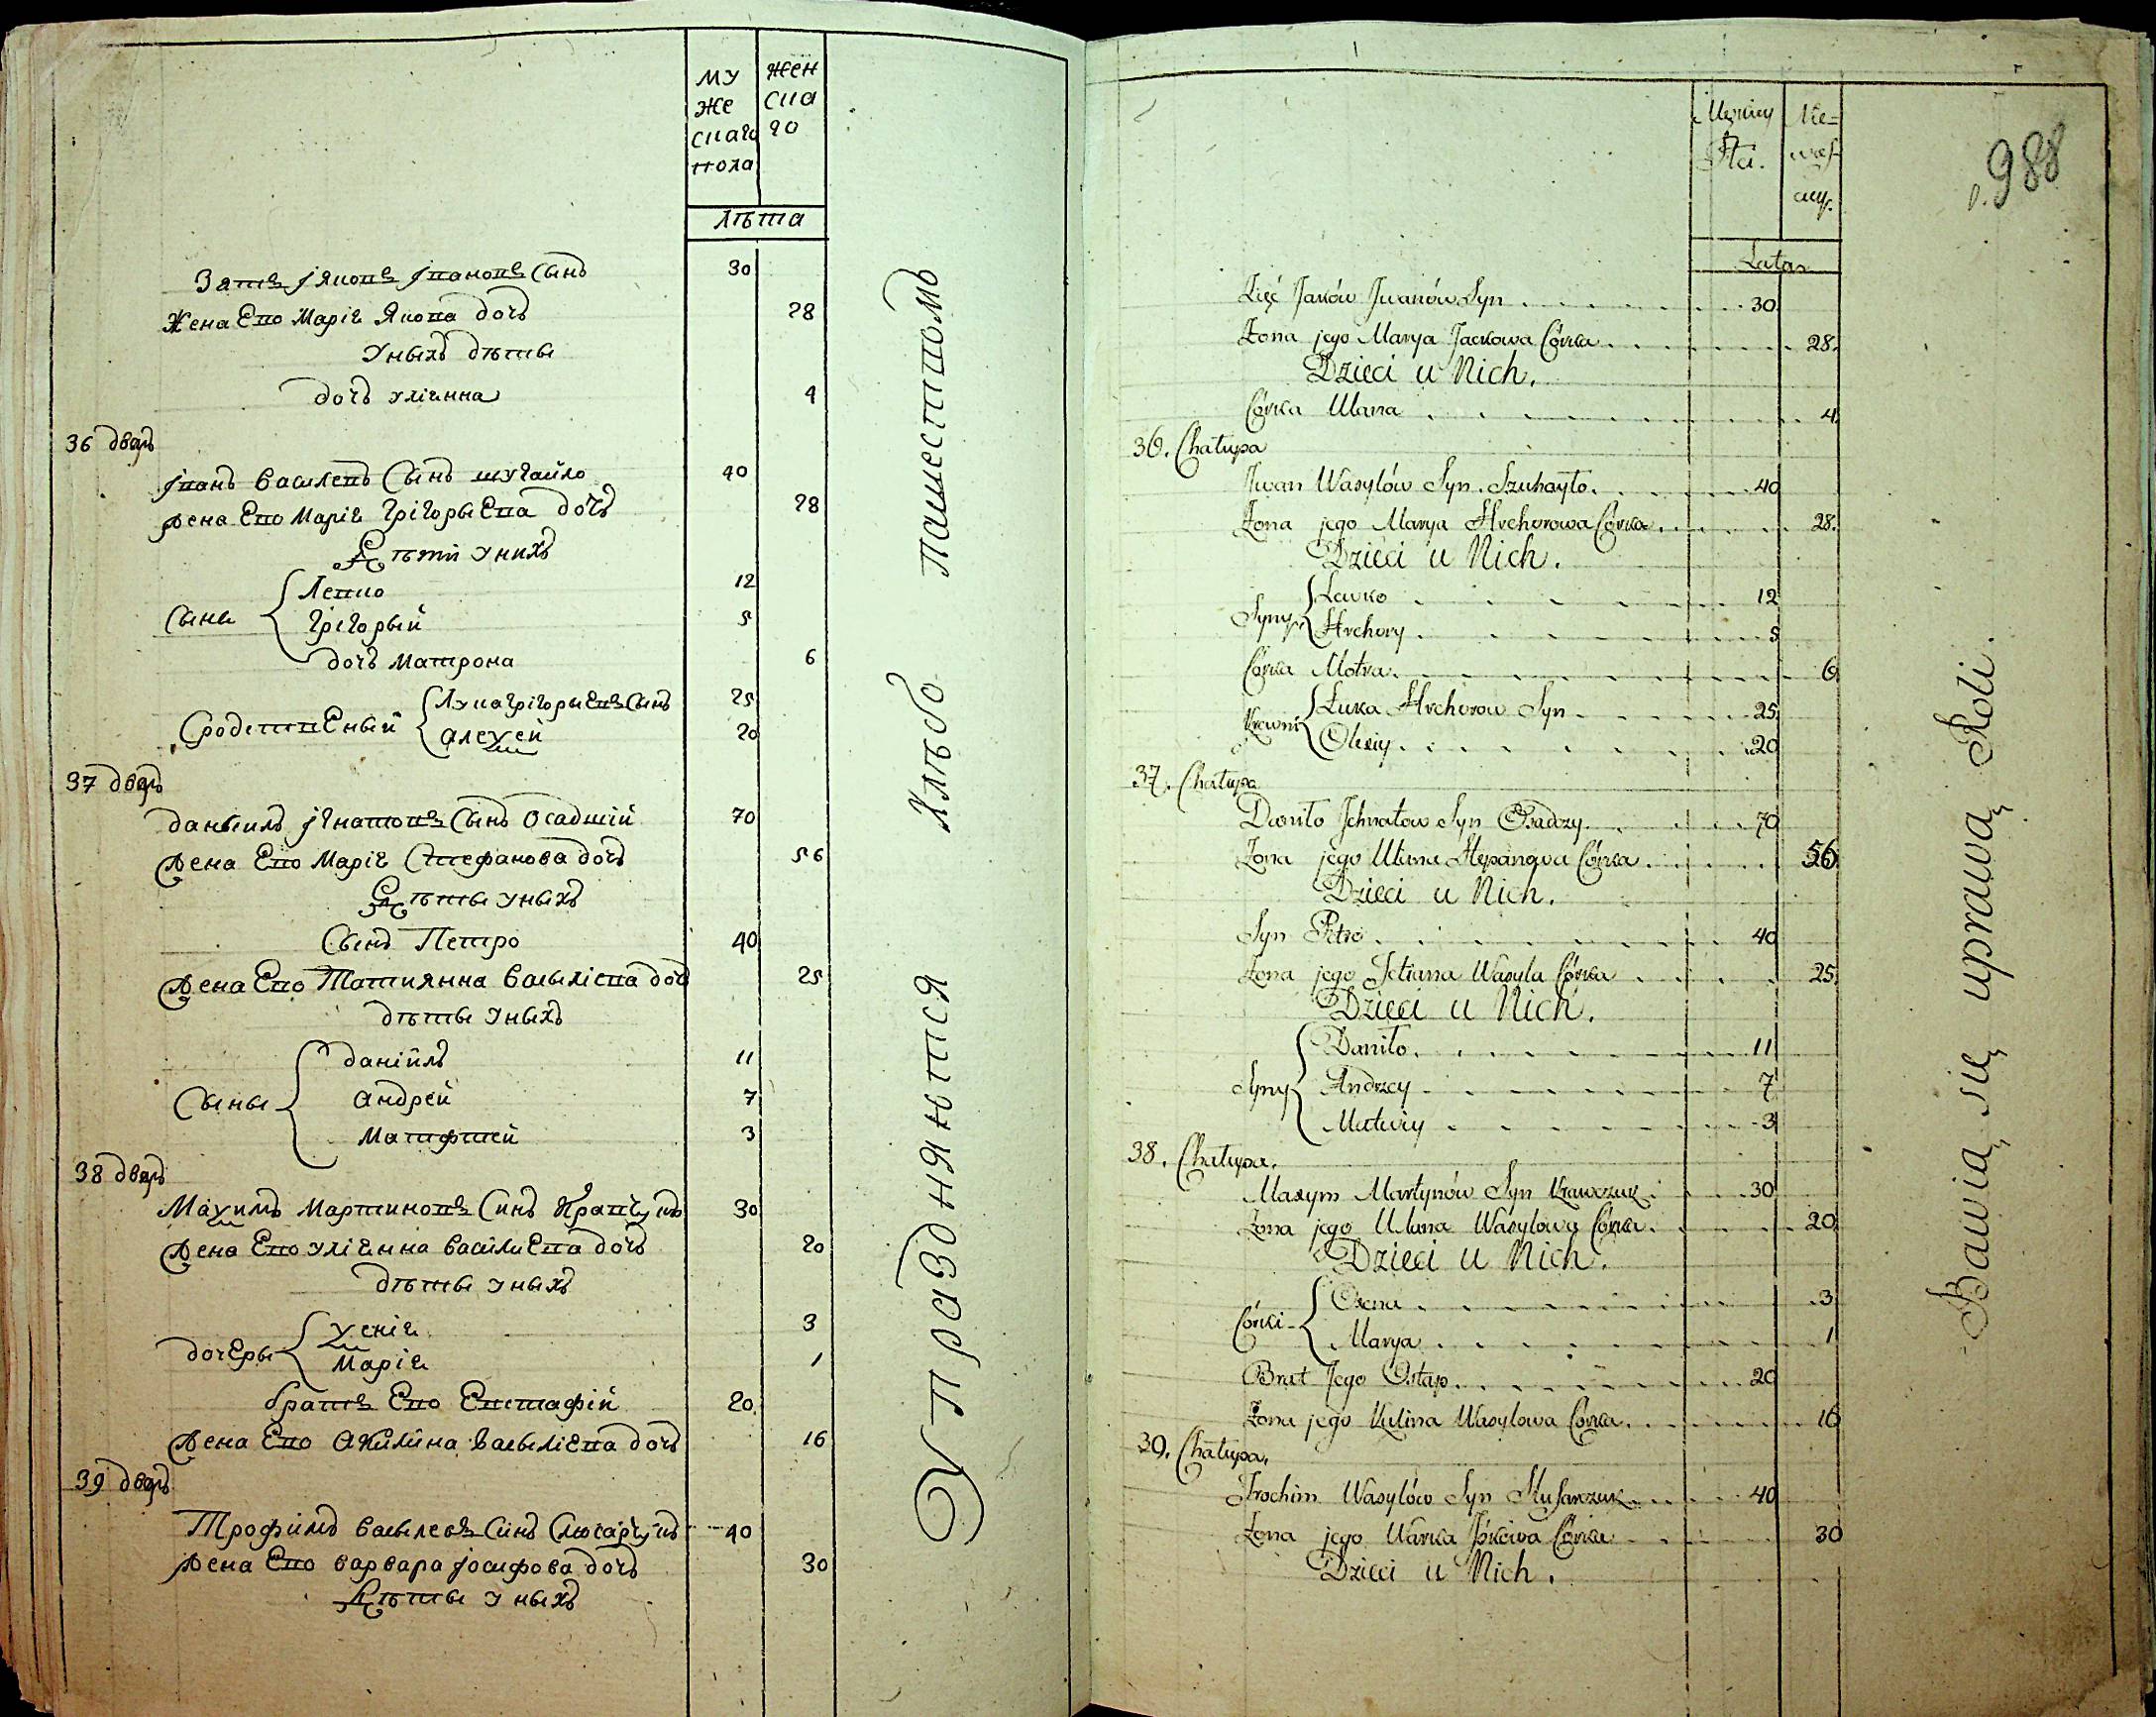 му жен
же ска
скаго го
пола
лѣта
Затъ Яковъ Івановъ Сынъ 30
Жена Его Маріа Якова дочъ 28
Уныхъ дѣты
дочъ уліанна 4
36 дворъ
Іванъ Василевъ Сынъ шугайло 40
жена Его Маріа Грігорыева дочъ 28
Дѣти Унихъ
Сыны { Левко 12
Грігорый 5
дочъ Матрона 6
Сродственый { Лука Грігорыевъ Сынъ 25
Алеѯей 20
37 дворъ
даныилъ Ігнатовъ Сынъ Осадшій 70
жена Его Маріа Стефанова дочъ 56
Дѣты Уныхъ
Сынъ Петро 40
жена Его Татиянна Василіева доч 25
дѣты Уныхъ
Сыны { даніилъ 11
андрей 7
Матфтей 3
38 дворъ
Маѯимъ Мартиновъ Синъ Кравчукъ 30
жена Его уліанна Василиева дочъ 20
дѣты Уныхъ
дочеры { Ѯеніа 3
Маріа 1
братъ Его Евстафій 20
жена Его Акилина Василіева дочъ 16
39 дворъ
Трофимъ Василевъ Синъ Слюсарчукъ 40
жена Его варвара Іосифова дочъ 30
Дѣты Уныхъ
Упражняются Хлѣбо пашеством
988
Męzkiey Nie=
Płci. wieś
ciey.
Lata
Zięć Jaków Jwanów Syn 30
Żona jego Marya Jackowa Córka 28.
Dzieci u Nich.
Córka Ulana 4.
36. Chałupa
Jwan Wasylów Syn Szuhayło 40
Żona jego Marya Hrehorowa Córka 28.
Dzieci u Nich.
Syny { Lewko 12
Hrehory 5
Córka Motra 6
Krewni { Łuka Hrehorow Syn 25
Olexiy 20
37. Chałupa
Daniło Jhnatow Syn Osadczy 70
Żona jego Ulana Stepanowa Córka 56
Dzieci u Nich.
Syn Petro 40
Żona jego Tetiana Wasyla Córka 25.
Dzieci u Nich.
Syny { Daniło 11
Andrzey 7
Matwiy 3
38. Chałupa.
Maxym Martynów Syn Krawczuk 30
Żona jego Ulana Wasylowa Córka 20
Dzieci u Nich.
Córki { Oxena 3
Marya 1
Brat Jego Ostap 20
Żona jego Kulina Wasylowa Córka 16
39. Chałupa.
Trochim Wasylów Syn Slusarczuk 40
Żona jego Warka Jòskowa Córka 30
Dzieci u Nich.
Bawią się uprawą Roli.